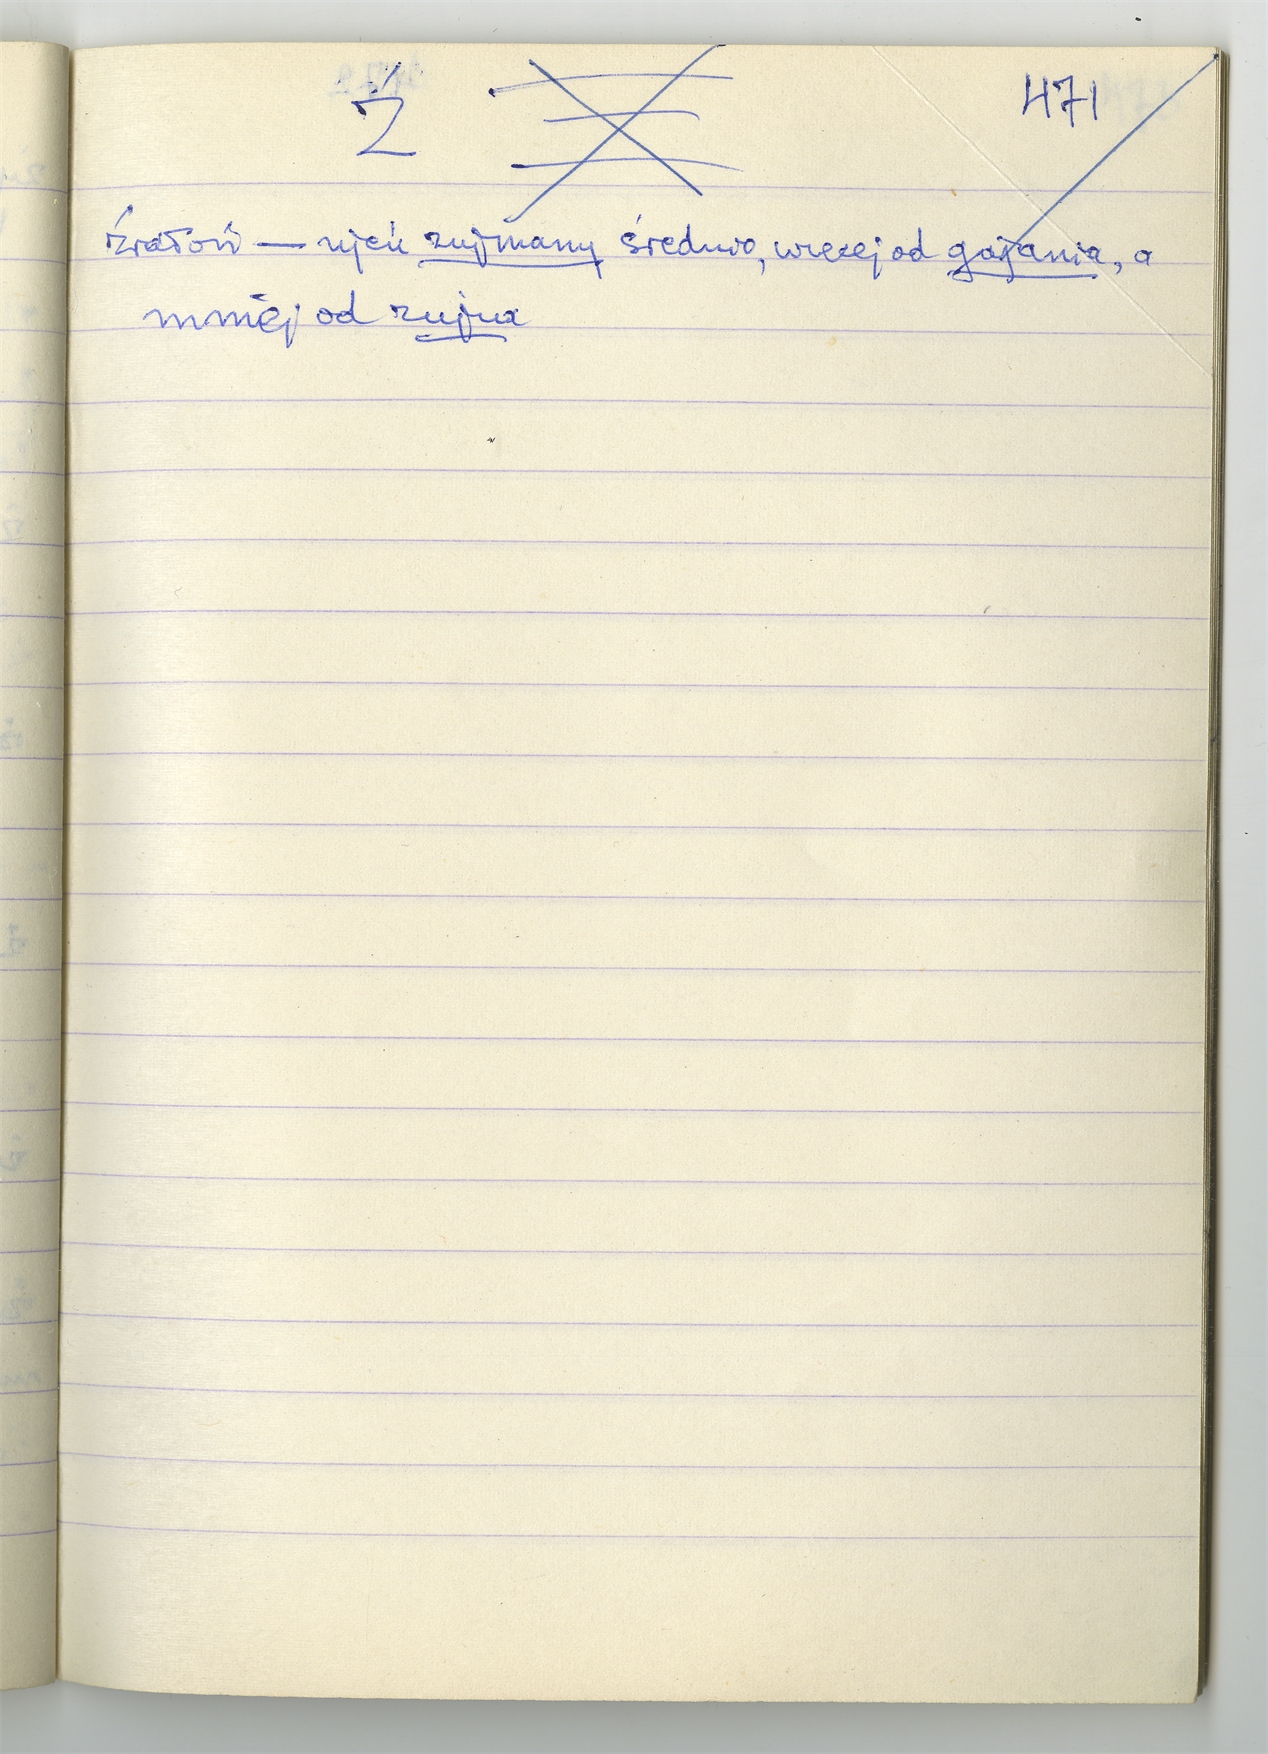 Ź 471
źrałoń — ujeń zujmany średnio, więcej od gajania, a
mniej od zujna